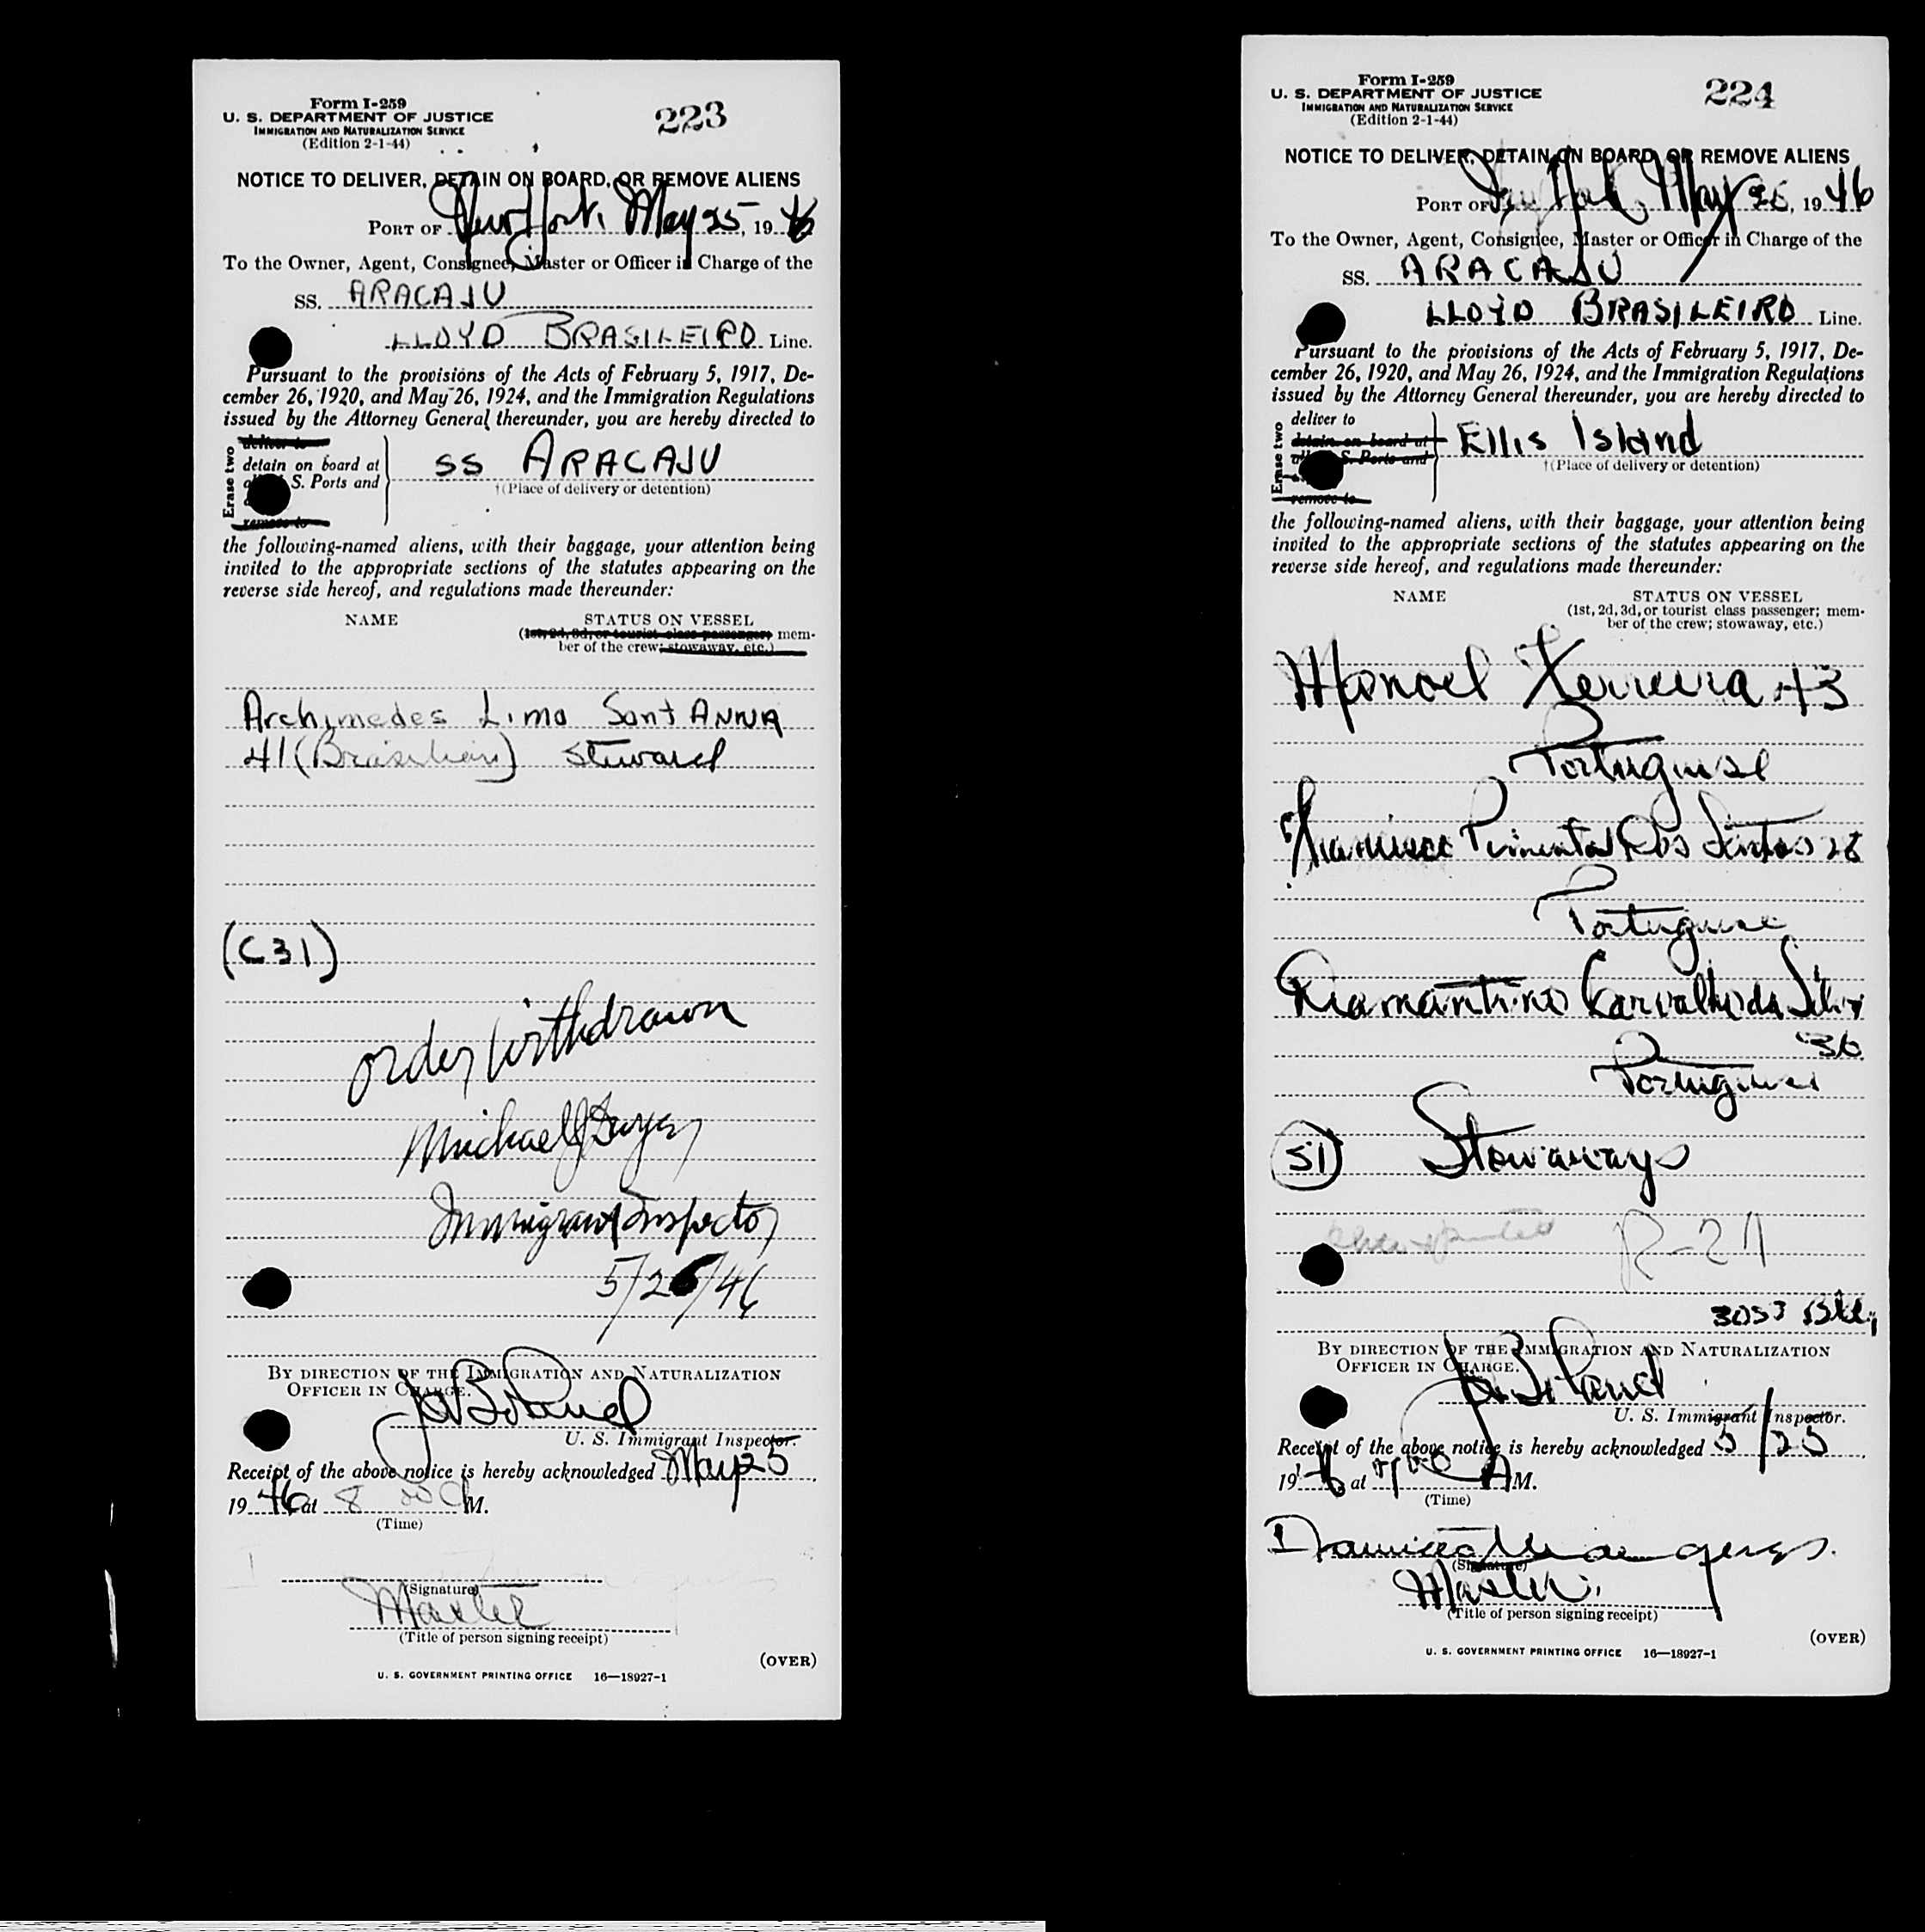 Form I-259
U. S. DEPARTMENT OF JUSTICE
IMMIGRATION AND NATURALIZATION SERVICE
(Edition 2-1-44)
223
NOTICE TO DELIVER, DETAIN ON BOARD, OR REMOVE ALIENS
PORT OF New York, May 25, 1946
To the Owner, Agent, Consignee, Master or Officer in Charge of the
SS. ARACAJU
LLOYD BRASILEIRO Line.
Pursuant to the provisions of the Acts of February 5, 1917, De-
cember 26, 1920, and May 26, 1924, and the Immigration Regulations
issued by the Attorney General thereunder, you are hereby directed to
Erase two
deliver to
detain on board at
S. Ports and
remove to
SS ARACAJU
†(Place of delivery or detention)
the following-named aliens, with their baggage, your attention being
invited to the appropriate sections of the statutes appearing on the
reverse side hereof, and regulations made thereunder:
NAME STATUS ON VESSEL
(1st, 2d, 3d, or tourist class passenger; mem-
ber of the crew; stowaway, etc.)
Archimedes Lima Sant ANNA
41 (Brasilian) Steward
(C31)
order withdrawn
Michael J
Immigrant Inspector
5/25/46
BY DIRECTION OF THE IMMIGRATION AND NATURALIZATION
OFFICER IN CHARGE.
U. S. Immigrant Inspector.
Receipt of the above notice is hereby acknowledged May 25
1946 at 8 00 AM.
(Time)
(Signature)
Master
(Title of person signing receipt)
(OVER)
U. S. GOVERNMENT PRINTING OFFICE 16—18927-1
Form I-259
U. S. DEPARTMENT OF JUSTICE
IMMIGRATION AND NATURALIZATION SERVICE
(Edition 2-1-44)
224
NOTICE TO DELIVER, DETAIN ON BOARD, OR REMOVE ALIENS
PORT OF New York, May 25, 1946
To the Owner, Agent, Consignee, Master or Officer in Charge of the
SS. ARACAJU
LLOYD BRASILEIRO Line.
Pursuant to the provisions of the Acts of February 5, 1917, De-
cember 26, 1920, and May 26, 1924, and the Immigration Regulations
issued by the Attorney General thereunder, you are hereby directed to
Erase two
deliver to
detain on board at
S. Ports and
remove to
Ellis Island
†(Place of delivery or detention)
the following-named aliens, with their baggage, your attention being
invited to the appropriate sections of the statutes appearing on the
reverse side hereof, and regulations made thereunder:
NAME STATUS ON VESSEL
(1st, 2d, 3d, or tourist class passenger; mem-
ber of the crew; stowaway, etc.)
Manoel Ferreira 43
Portuguese
Francisco Pimental Dos Santos 28
Portuguese
Diamantino Carvalho da Silva
36
Portuguese
S1 Stowaways
R-27
3053
BY DIRECTION OF THE IMMIGRATION AND NATURALIZATION
OFFICER IN CHARGE.
U. S. Immigrant Inspector.
Receipt of the above notice is hereby acknowledged 5/25
1946 at AM.
(Time)
(Signature)
Master.
(Title of person signing receipt)
(OVER)
U. S. GOVERNMENT PRINTING OFFICE 16—18927-1